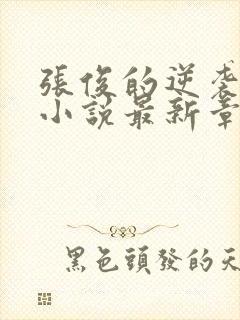 張俊的逆袭
小説最新章
黑色頭發的天